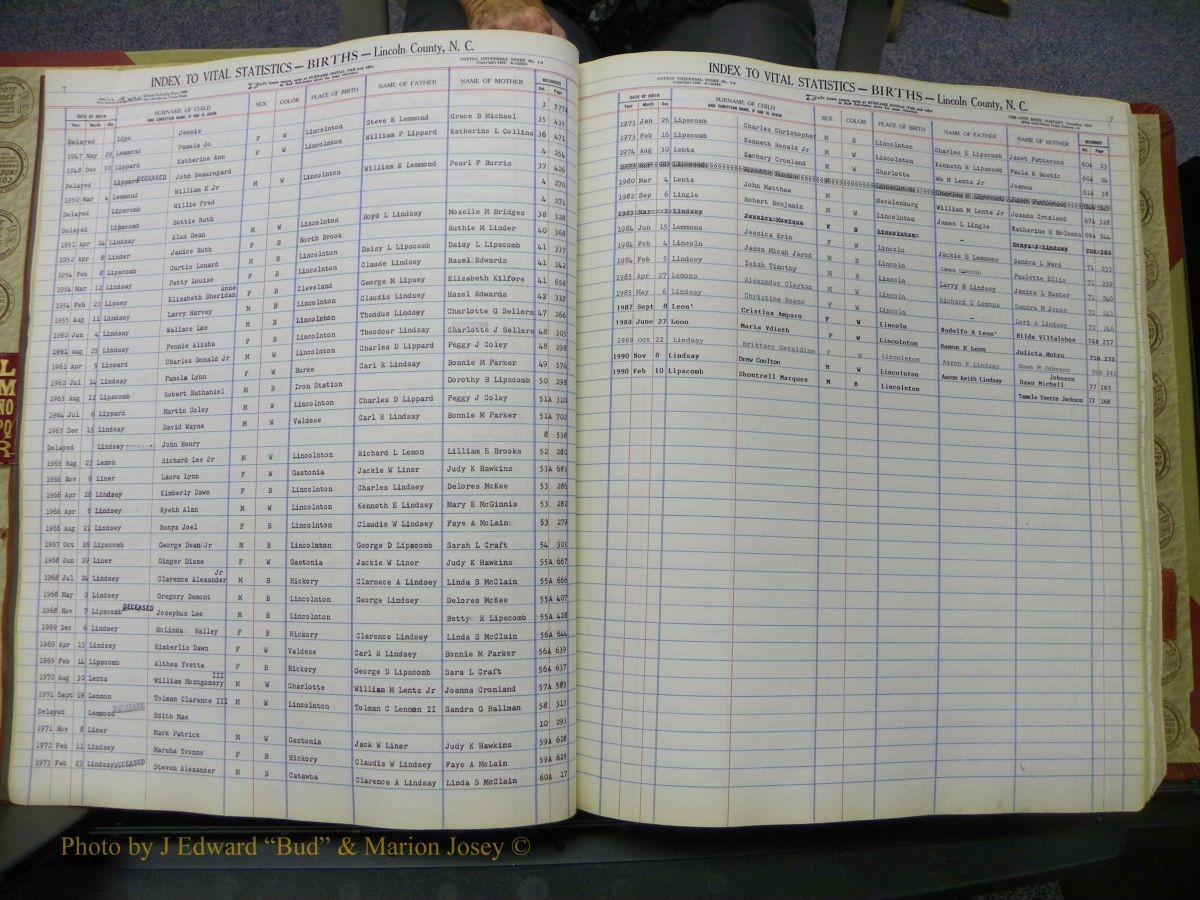 7
INDEX TO VITAL STATISTICS — BIRTHS — Lincoln County, N. C.
COTTCO UNIVERSAL INDEX No. 1-4
DATE OF BIRTH SURNAME OF CHILD SEX COLOR PLACE OF BIRTH NAME OF FATHER NAME OF MOTHER RECORDED
Year Month Day AND CHRISTIAN NAME, IF ONE IS GIVEN Vol. Page
Delayed Lipe Jennie 3 577
1947 May 29 Lemmond Pamela Jo F W Lincolnton Steve E Lemmond Grace B Michael 35 435
1948 Dec 30 Lippard Katherine Ann F W Lincolnton William P Lippard Katherine L Collins 36 471
Delayed Lippard DECEASED John Beauregard 4 254
1950 Mar 4 Lemmond William E Jr M W Lincolnton William E Lemmond Pearl F Burris 37 426
Delayed Lipscomb Willie Fred 4 270
Delayed Lipscomb Bettie Ruth 4 271
1951 Apr 14 Lindsay Alan Dean M W Lincolnton Boyd L Lindsay Mozelle M Bridges 38 328
1952 Apr 8 Linder Janice Ruth F B North Brook Ruthie M Linder 40 368
1954 Feb 8 Lipscomb Curtis Lonard M B Lincolnton Daisy L Lipscomb Daisy L Lipscomb 41 337
1954 Mar 12 Lindsay Patty Louise F B Lincolnton Claude Lindsay Hazel Edwards 41 342
1954 Feb 23 Lipsey Elizabeth Sheridan Anne F B Cleveland George M Lipsey Elizabeth Kilfore 41 658
1955 Aug 11 Lindsay Larry Harvey M B Lincolnton Claudis Lindsay Hazel Edwards 42 317
1960 Jun 4 Lindsay Wallace Lee M B Lincolnton Theodus Lindsay Charlotte G Sellers 47 266
1961 Aug 25 Lindsay Pennie Alisha F B Lincolnton Theodour Lindsay Charlotte J Sellers 48 303
1961 Apr 5 Lippard Charles Donald Jr M W Lincolnton Charles D Lippard Peggy J Coley 48 298
1962 Jul 14 Lindsay Pamela Lynn F W Burke Carl R Lindsay Bonnie M Parker 49 576
1963 Aug 12 Lipscomb Robert Nathaniel M B Iron Station Dorothy B Lipscomb 50 298
1964 Jul 6 Lippard Martin Coley M W Lincolnton Charles D Lippard Peggy J Coley 51A 310
1963 Dec 15 Lindsay David Wayne M W Valdese Carl R Lindsay Bonnie M Parker 51A 702
Delayed Lindsay DECEASED John Henry 8 538
1965 Aug 23 Lemon Richard Lee Jr M W Lincolnton Richard L Lemon Lilliam E Brooks 52 280
1966 Nov 9 Liner Laura Lynn F W Gastonia Jackie W Liner Judy K Hawkins 53A 683
1966 Apr 28 Lindsey Kimberly Dawn F B Lincolnton Charles Lindsey Delores McKee 53 286
1966 Apr 6 Lindsey Kyeth Alan M W Lincolnton Kenneth E Lindsey Mary E McGinnis 53 282
1966 Aug 21 Lindsey Sonya Joel F B Lincolnton Claudis W Lindsey Faye A McLain 53 279
1967 Oct 26 Lipscomb George Dean Jr M B Lincolnton George D Lipscomb Sarah L Craft 54 303
1968 Jun 29 Liner Ginger Diane F W Gastonia Jackie W Liner Judy K Hawkins 55A 667
1968 Jul 24 Lindsey Clarence Alexander Jr M B Hickory Clarnece A Lindsey Linda S McClain 55A 666
1968 May 2 Lindsey Gregory Demont M B Lincolnton George Lindsey Delores McKee 55A 407
1968 Nov 7 Lipscomb DECEASED Josephus Lee M B Lincolnton Betty R Lipscomb 55A 428
1969 Dec 6 Lindsey McLinda Halley F B Hickory Clarence Lindsey Linda S McClain 56A 644
1969 Apr 13 Lindsey Kimberlie Dawn F W Valdese Carl R Lindsey Bonnie M Parker 56A 639
1969 Feb 14 Lipscomb Althea Yvette F B Hickory George D Lipscomb Sara L Craft 56A 637
1970 Aug 30 Lentz William Montgomery III M W Charlotte William M Lentz Jr Joanna Cronland 57A 583
1971 Sept 19 Lennon Tolman Clarence III M W Lincolnton Tolman C Lennon II Sandra G Hallman 58 313
Delayed Lemmond DECEASED Edith Mae 10 293
1971 Nov 8 Liner Mark Patrick M W Gastonia Jack W Liner Judy K Hawkins 59A 628
1972 Feb 11 Lindsey Marsha Yvonne F B Hickory Claudis W Lindsey Faye A McLain 59A 625
1973 Feb 23 Lindsay DECEASED Stevan Alexander M B Catawba Clarence A Lindsay Linda S McClain 60A 17
INDEX TO VITAL STATISTICS — BIRTHS — Lincoln County, N. C.
7
COTTCO UNIVERSAL INDEX No. 1-4
DATE OF BIRTH SURNAME OF CHILD SEX COLOR PLACE OF BIRTH NAME OF FATHER NAME OF MOTHER RECORDED
Year Month Day AND CHRISTIAN NAME, IF ONE IS GIVEN Vol. Page
1973 Jan 26 Lipscomb Charles Christopher M B Lincolnton Charles E Lipscomb Janet Patterson 60A 23
1973 Feb 16 Lipscomb Kenneth Ronald Jr M W Lincolnton Kenneth R Lipscomb Paula K Bostin 60A 24
1974 Aug 30 Lentz Zachary Cronland M W Charlotte Wm M Lentz Jr Joanna 61A 38
1980 Mar 4 Lentz John Matthew M W Mecklenburg William M Lentz Jr Joanna Cronland 67A 328
1982 Sep 6 Lingle Robert Benjamin M W Lincolnton James L Lingle Katherine R McCombs 69A 344
1984 Jun 15 Lemmons Jessica Erin F W Lincoln Jackie E Lemmons Sandra L Ward 71 233
1984 Feb 4 Lincoln Jason Micah Jarod M Lincoln James Lincoln Paulette Ellis 71 239
1984 Feb 5 Lindsey Isiah Timothy M Lincoln Larry H Lindsey Janice L Hunter 71 240
1985 Apr 27 Lemons Alexander Clayton M W Lincoln Richard C Lemons Sandra M Jones 72 241
1985 May 6 Lindsey Christina Keana F Lincoln Lori A Lindsay 72 246
1987 Sept 8 Leon' Cristina Amparo F W Lincoln Rodolfo A Leon' Hilda Villalobos 74B 257
1988 June 27 Leon Maria Ydieth F W Lincolnton Ramon R Leon Julieta Motro 75B 270
1989 Oct 22 Lindsay Brittany Geraldine F W Lincolnton Aaron K Lindsay Dawn M Johnson 76b 241
1990 Nov 8 Lindsay Drew Coulton M W Lincolnton Aaron Keith Lindsay Dawn Michell Johnson 77 263
1990 Feb 10 Lipscomb Shontrell Marques M B Lincolnton Tamela Yvette Jackson 77 268
Photo by J Edward “Bud” & Marion Josey ©